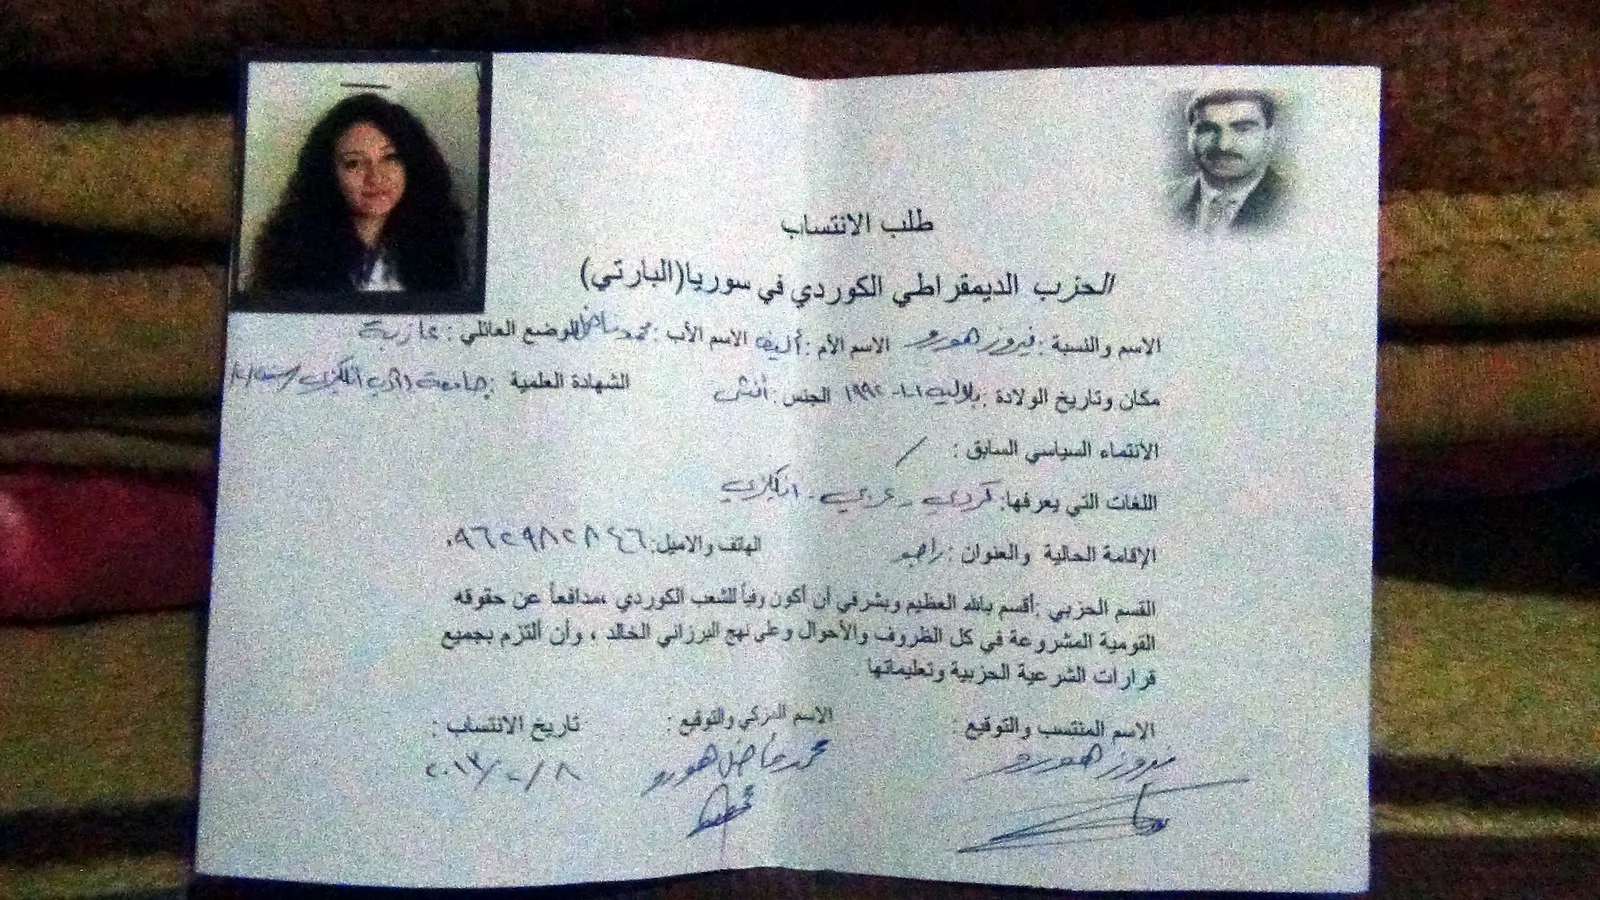 طلب الانتساب
الحزب الديمقراطي الكوردي في سوريا(البارتي)
الاسم والنسبة : فيروز هورو الاسم الأم : أليف الاسم الأب : محمد فاضل الوضع العائلي : عازبة
مكان وتاريخ الولادة : بلاليه ١-١-١٩٩٢ الجنس : أنثى الشهادة العلمية : جامعة أدب انكليزي
الأنتماء السياسي السابق : /
اللغات التي يعرفها: كردي - عربي - انكليزي
الإقامة الحالية والعنوان : راجو الهاتف والاميل: ٠٩٦٢٩٨٢٨٤٦
القسم الحزبي :أقسم بالله العظيم وبشرفي أن أكون وفياً للشعب الكوردي ،مدافعاً عن حقوقه
القومية المشروعة في كل الظروف والأحوال وعلى نهج البرزاني الخالد ، وأن ألتزم بجميع
قرارات الشرعية الحزبية وتعليماتها
الاسم المنتسب والتوقيع : الاسم المزكي والتوقيع : تاريخ الانتساب :
فيروز هورو محمد فاضل هورو